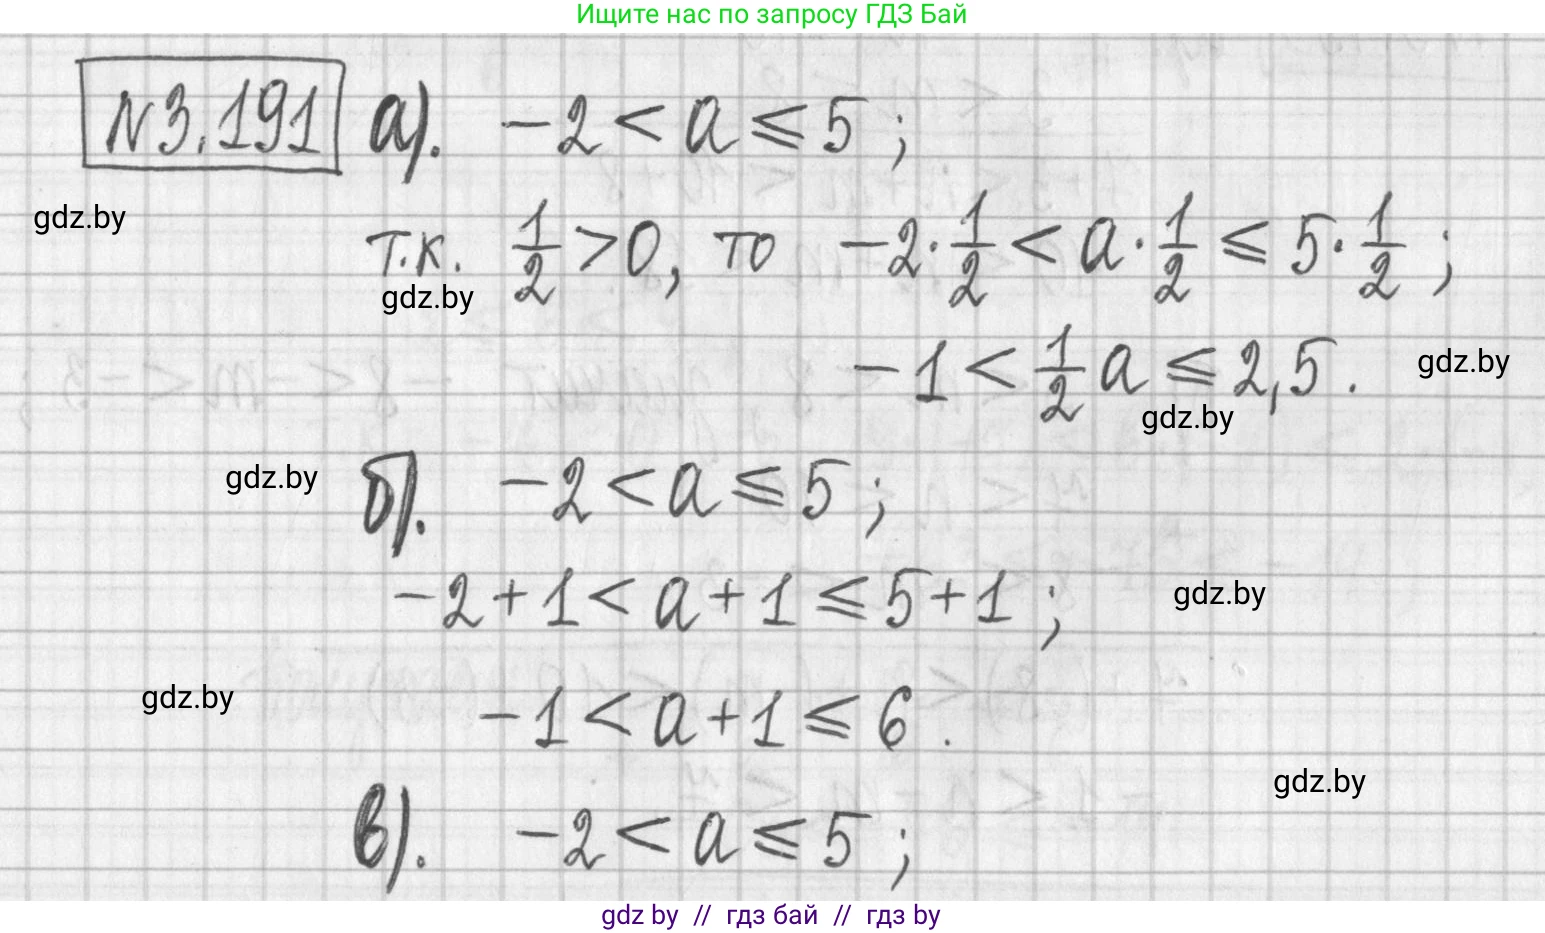 Ищите нас по запросу ГДЗ Бай
N3.191 а). -2 < a ⩽ 5 ;
gdz.by
т.к. 1/2 > 0, то -2·1/2 < a·1/2 ⩽ 5·1/2 ;
gdz.by
-1 < 1/2 a ⩽ 2,5 .
gdz.by
gdz.by
gdz.by
б). -2 < a ⩽ 5 ;
-2+1 < a+1 ⩽ 5+1 ;
gdz.by
gdz.by
-1 < a+1 ⩽ 6 .
gdz.by
в). -2 < a ⩽ 5 ;
gdz by // гдз бай // гдз by